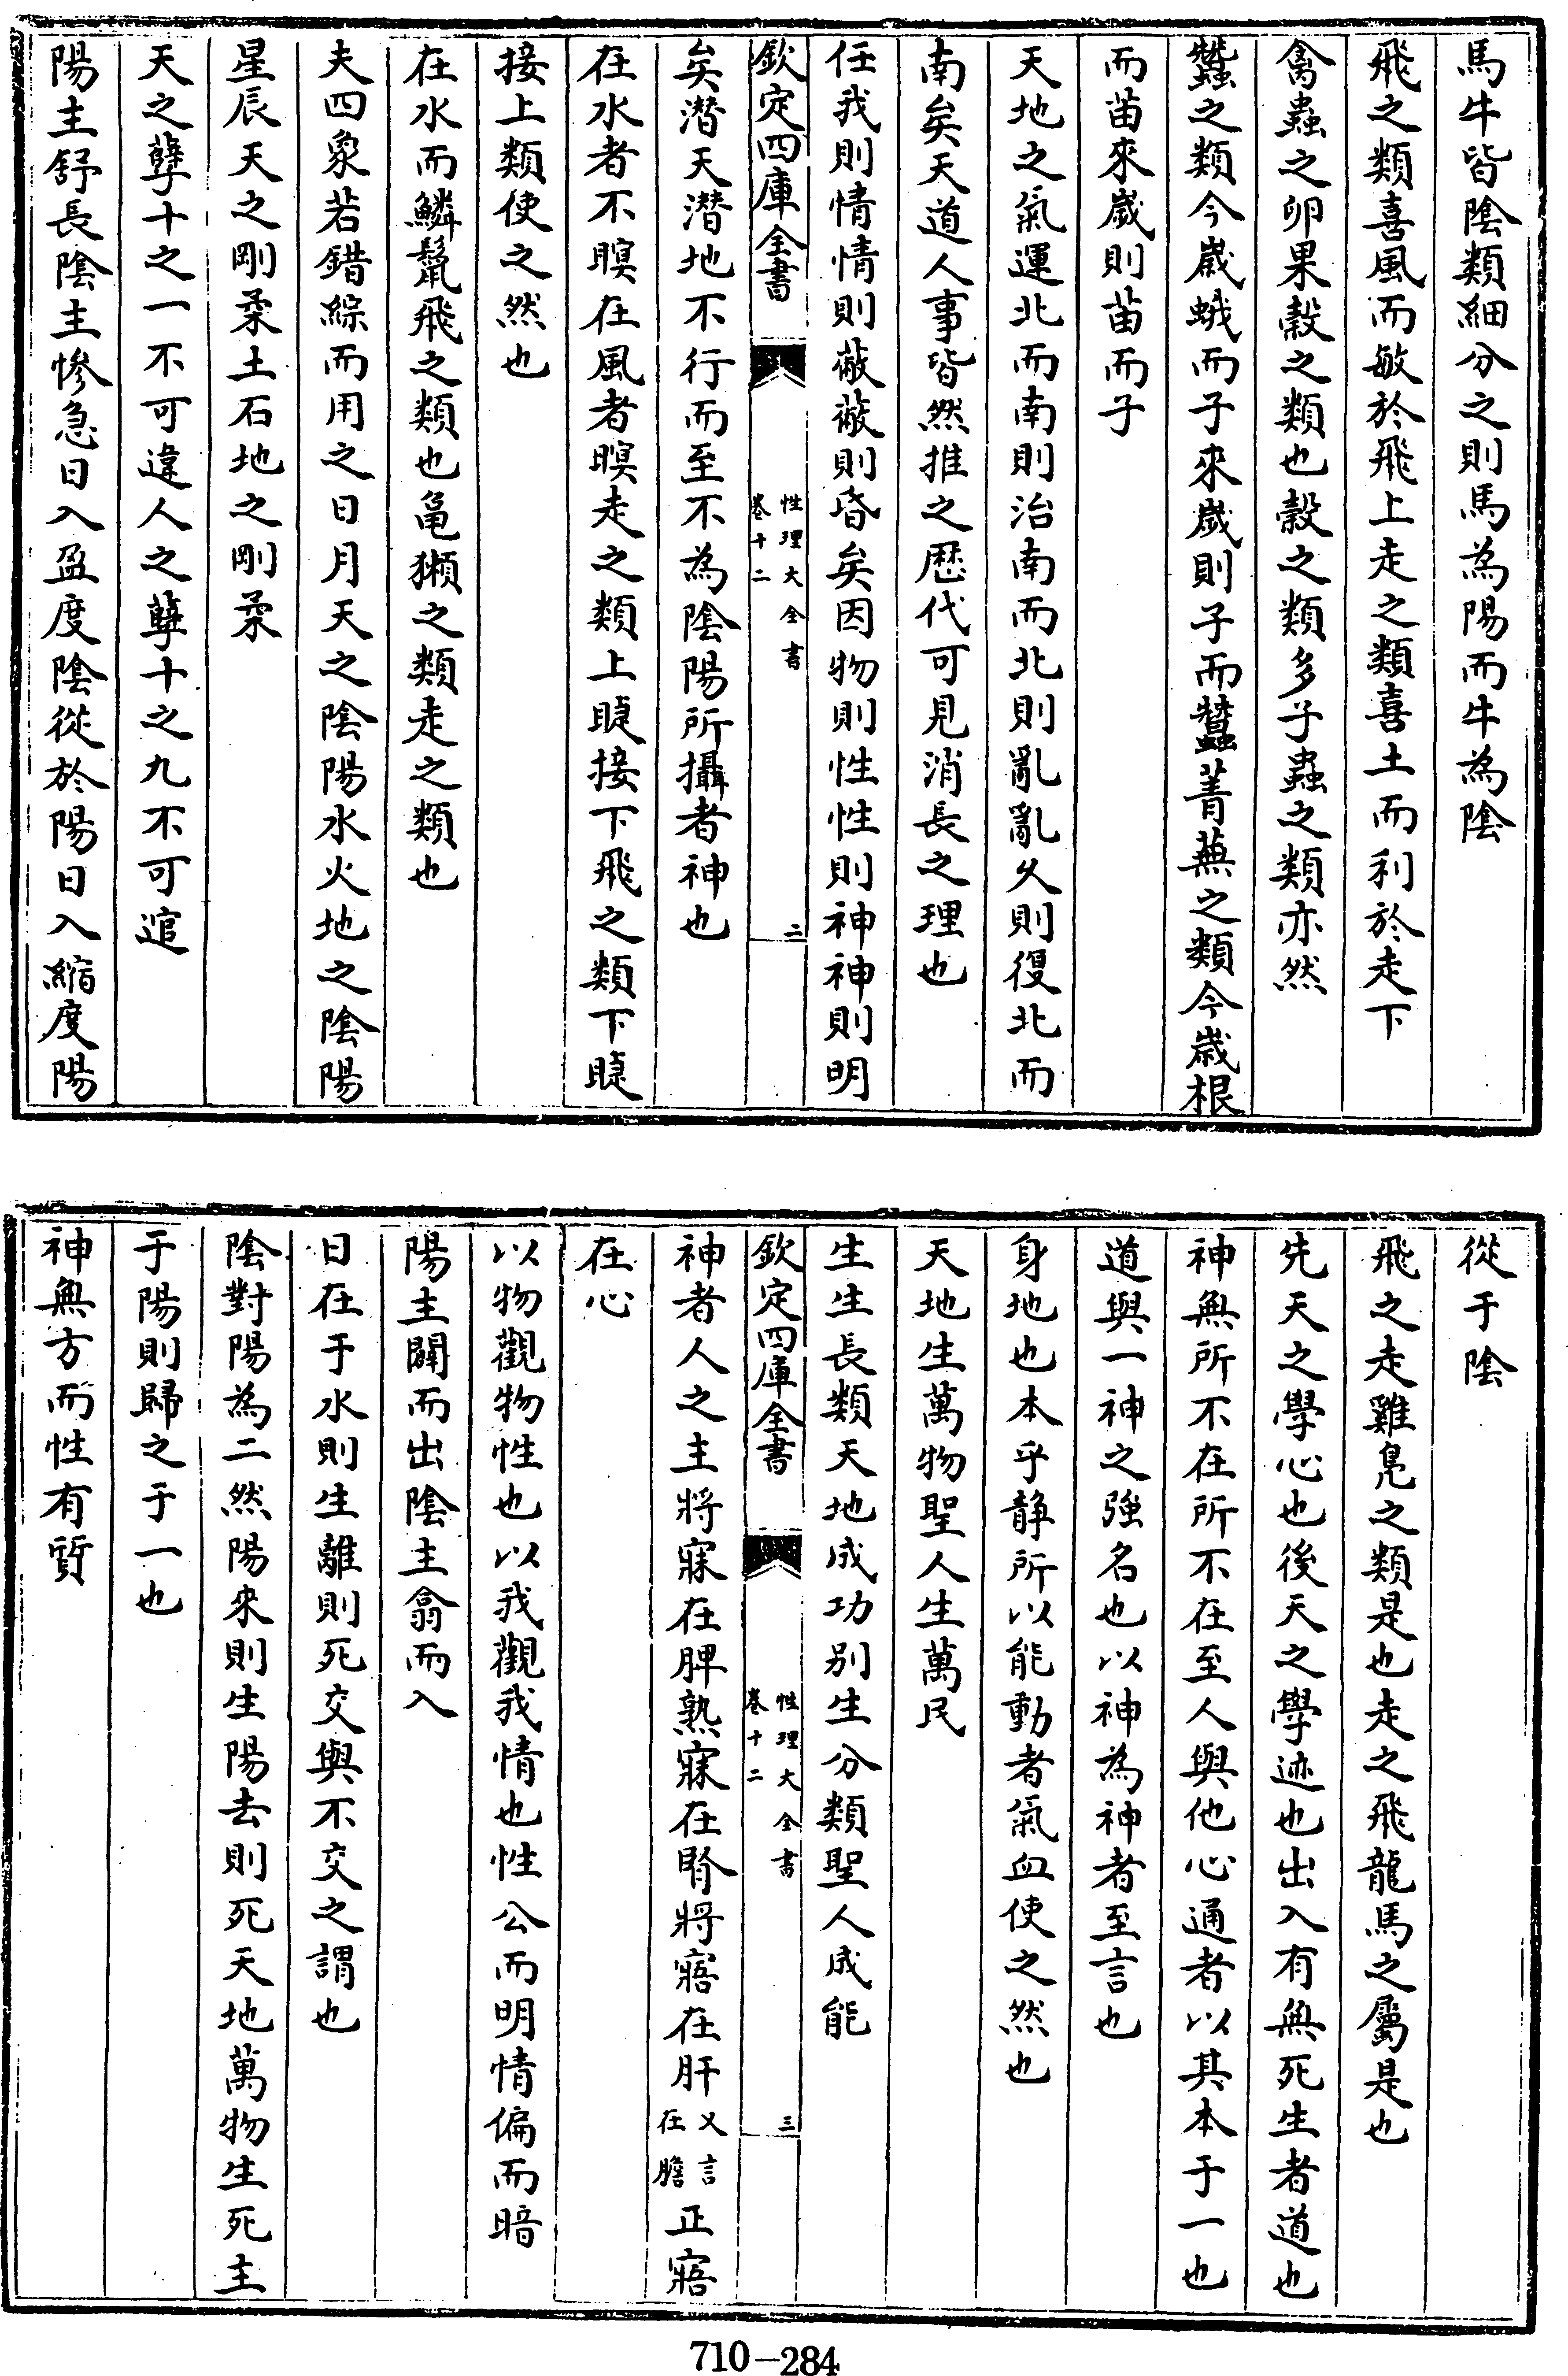 馬牛皆陰類細分之則馬為陽而牛為陰
飛之類喜風而敏於飛上走之類喜土而利於走下
禽蟲之卵果穀之類也穀之類多子蟲之類亦然
蠶之類今嵗蛾而子來嵗則子而蠶菁蕪之類今嵗根
而苗來嵗則苗而子
天地之氣運北而南則治南而北則亂亂久則復北而
南矣天道人事皆然推之歴代可見消長之理也
任我則情情則蔽蔽則昏矣因物則性性則神神則明
欽定四庫全書
性理大全書
卷十二
二
矣潜天潜地不行而至不為陰陽所攝者神也
在水者不瞑在風者瞑走之類上睫接下飛之類下睫
接上類使之然也
在水而鱗鬛飛之類也龜獺之類走之類也
夫四象若錯綜而用之日月天之陰陽水火地之陰陽
星辰天之剛柔土石地之剛柔
天之孽十之一不可違人之孽十之九不可逭
陽主舒長陰主慘急日入盈度陰從於陽日入縮度陽
從于陰
飛之走雞鳬之類是也走之飛龍馬之屬是也
先天之學心也後天之學迹也出入有無死生者道也
神無所不在所不在至人與他心通者以其本于一也
道與一神之強名也以神為神者至言也
身地也本乎静所以能動者氣血使之然也
天地生萬物聖人生萬民
生生長類天地成功别生分類聖人成能
欽定四庫全書
性理大全書
卷十二
三
神者人之主將寐在脾熟寐在腎將寤在肝又言在膽正寤
在心
以物觀物性也以我觀我情也性公而明情偏而暗
陽主闢而出陰主翕而入
日在于水則生離則死交與不交之謂也
陰對陽為二然陽來則生陽去則死天地萬物生死主
于陽則歸之于一也
神無方而性有質
710-284